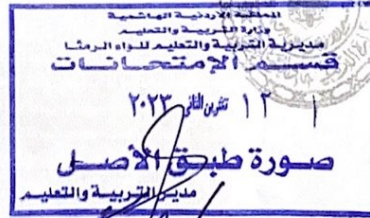 المملكة الأردنية الهاشمية
وزارة التربية والتعليم
مديرية التربية والتعليم للواء الرمثا
قسم الإمتحانات
١٢ تشرين الثاني ٢٠٢٣
صورة طبق الأصل
مدير التربية والتعليم